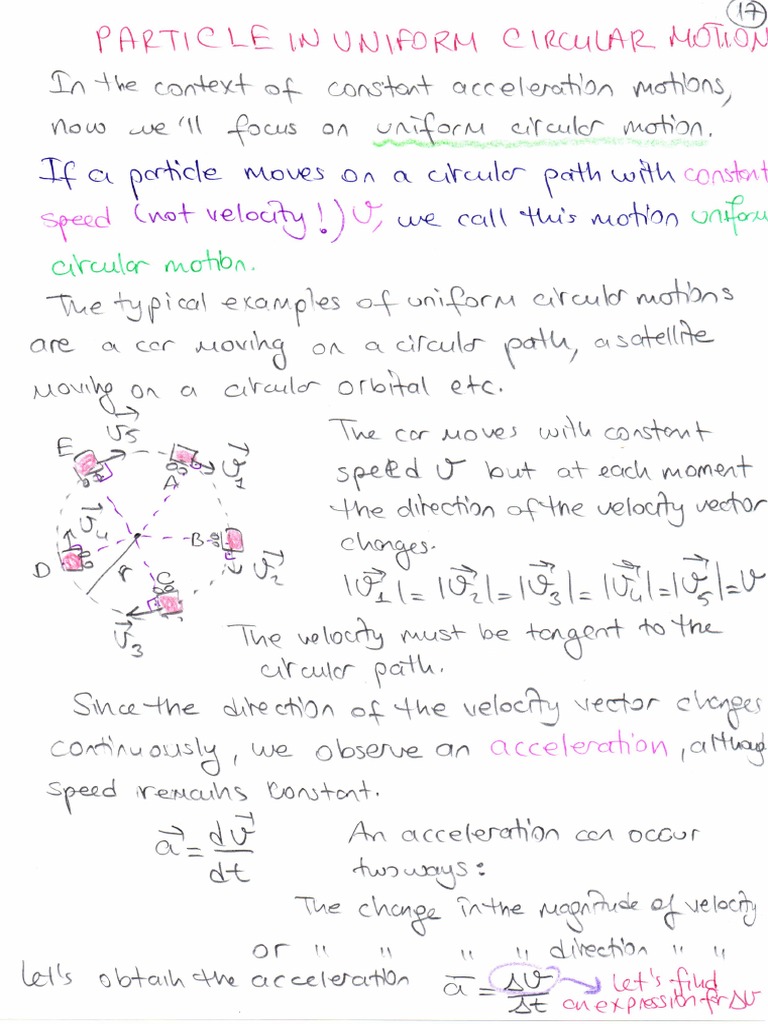 17
PARTICLE IN UNIFORM CIRCULAR MOTION
In the context of constant acceleration motions,
now we'll focus on uniform circular motion.
If a particle moves on a circular path with constant
speed (not velocity!) v, we call this motion uniform
circular motion.
The typical examples of uniform circular motions
are a car moving on a circular path, a satellite
moving on a circular orbital etc.
E v⃗5 A v⃗1
B v⃗2
C v⃗3
D v⃗4
r
The car moves with constant
speed v but at each moment
the direction of the velocity vector
changes.
|v⃗1| = |v⃗2| = |v⃗3| = |v⃗4| = |v⃗5| = v
The velocity must be tangent to the
circular path.
Since the direction of the velocity vector changes
continuously, we observe an acceleration, although
speed remains constant.
a⃗ = dv⃗/dt
An acceleration can occur
two ways:
The change in the magnitude of velocity
or " " " " direction " "
Let's obtain the acceleration a̅ = Δv/Δt let's find
an expression for Δv